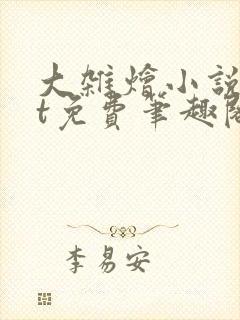 大雜燴小說
t免費筆趣閣
李易安